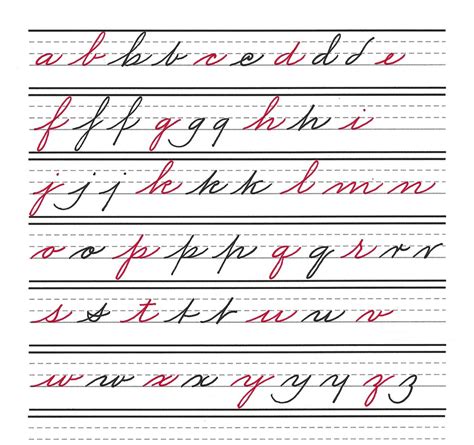 a b b b c c d d d e
f f f g g q h h i
j j j k k k l m n
o o p p p q q r r r
s s t t t u u v
w w x x y y y z z